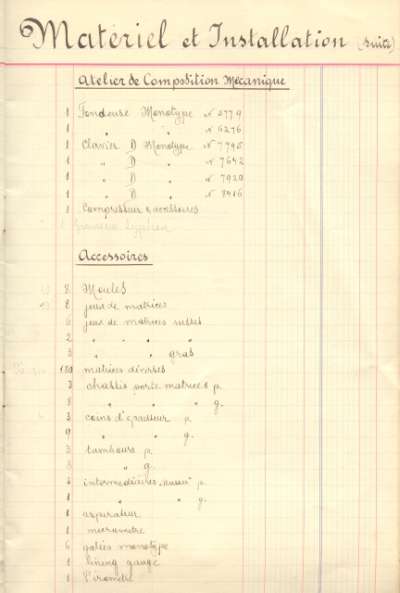 Matériel et Installation (suite)
Atelier de Composition Mécanique
1 Fondeuse Monotype N° 2779
1 " " N° 6276
1 Clavier D Monotype N° 7795
1 " D " N° 7642
1 " D " N° 7920
1 " D " N°
1 Compresseur & accessoires
1
Accessoires
8 Moules
8 jeux de matrices
6 jeux de matrices russes
2 " " " "
3 " " " gras
matrices diverses
3 chassis porte matrices p.
8 " " " g.
3 coins d'épaisseur p.
9 " " g.
3 tambours p.
8 " g.
6 intermédiaires p.
1 " " g.
1 aspirateur
1 micromètre
6 galées monotype
1 lining gauge
1